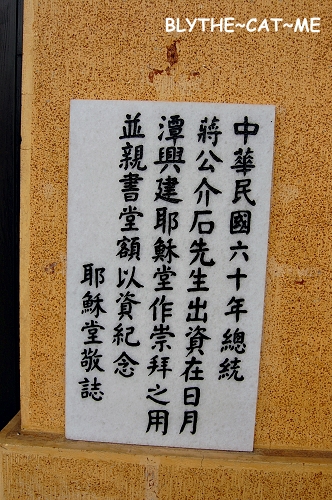 BLYTHE~CAT~ME
中華民國六十年總統
蔣公介石先生出資在日月
潭興建耶穌堂作崇拜之用
並親書堂額以資紀念
耶穌堂敬誌